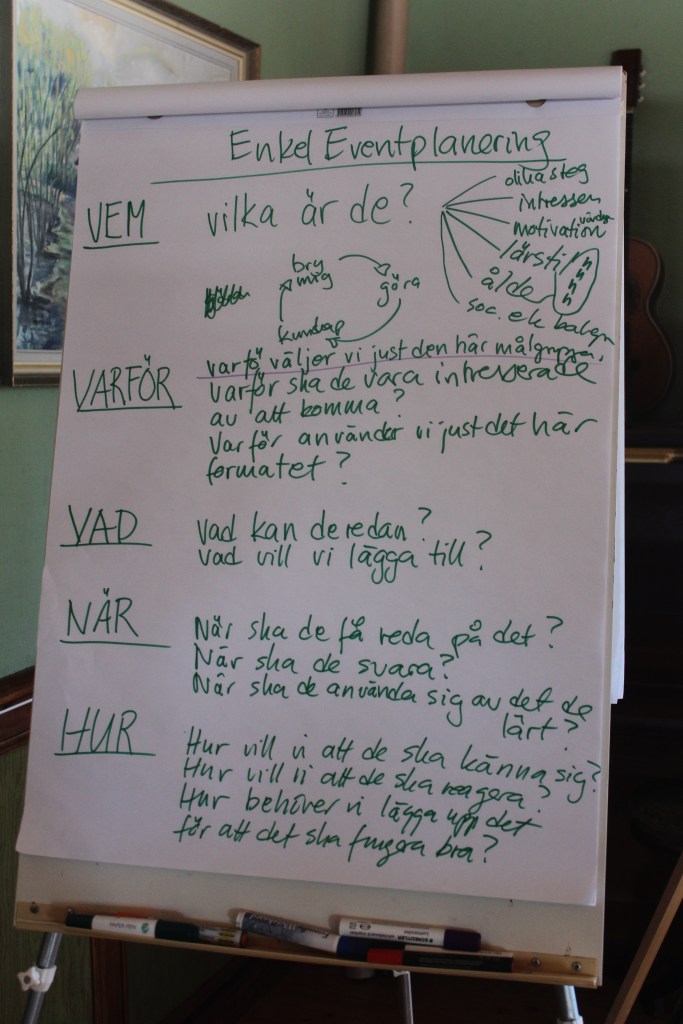 Enkel Eventplanering
VEM
vilka är de?
olika steg
intressen
motivation
lärstil
ålder
soc. ek bakgr
bry
mig
göra
kunskap
VARFÖR
varför väljer vi just den här målgruppen,
varför ska de vara intresserade
av att komma?
Varför använder vi just det här
formatet?
VAD
Vad kan de redan?
vad vill vi lägga till?
NÄR
När ska de få reda på det?
När ska de svara?
När ska de använda sig av det de
lärt?
HUR
Hur vill vi att de ska känna sig?
Hur vill vi att de ska reagera?
Hur behöver vi lägga upp det
för att det ska fungera bra?
STAEDTLER